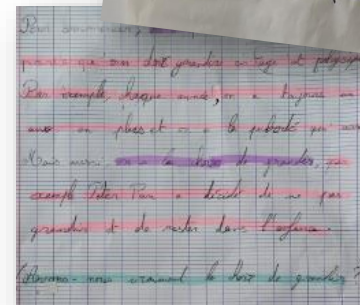 Pour commencer,
qu'on doit grandir en âge et
Par exemple, chaque année, on a toujours un
ans en plus et on a la puberté qui
Mais aussi, on a le choix de grandir, par
exemple Peter Pan a décidé de ne pas
grandir et de rester dans l'enfance.
(Avons-nous vraiment le choix de grandir ?